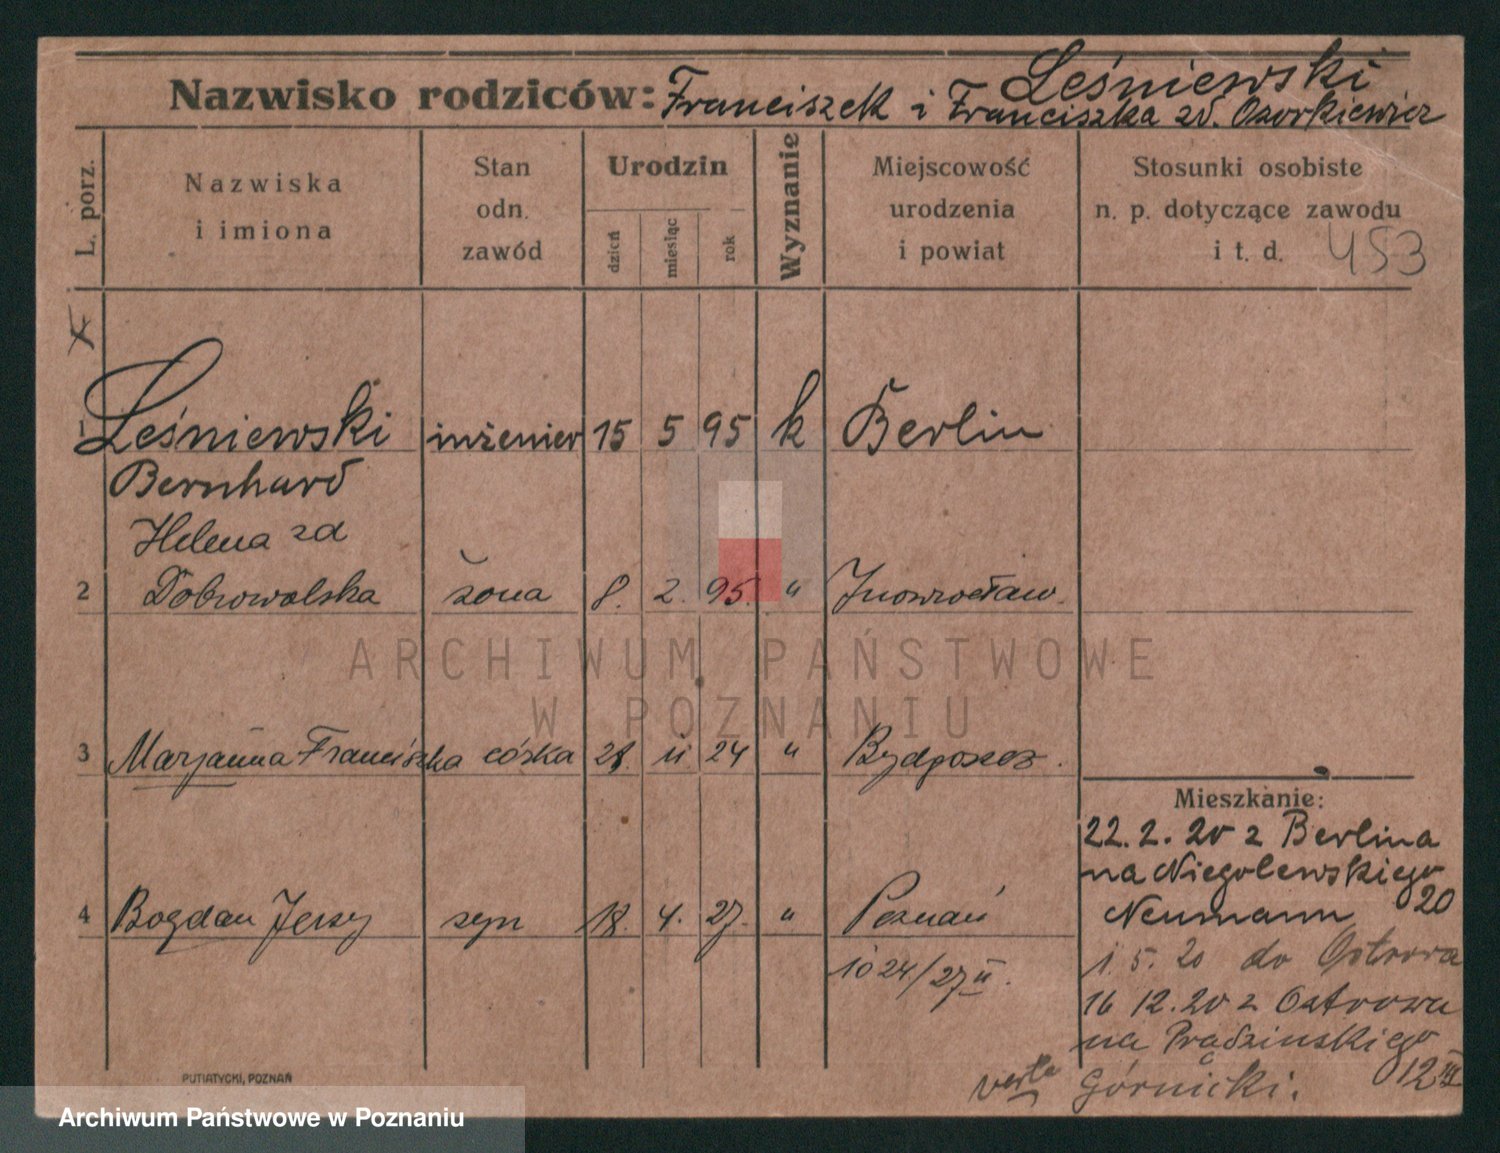 Leśniewski
Nazwisko rodziców: Franciszek i Franciszka zd. Ozorkiewicz
L. porz.
Nazwiska
i imiona
Stan
odn.
zawód
Urodzin
dzień
miesiąc
rok
Wyznanie
Miejscowość
urodzenia
i powiat
Stosunki osobiste
n. p. dotyczące zawodu
i t. d. 453
1 Leśniewski inżenier 15 5 95 k Berlin
Bernhard
Helena zd
2 Dobrowolska żona 8. 2. 95. " Inowrocław
3 Marjanna Franciszka córka 28. 11 24 " Bydgoszcz.
4 Bogdan Jerzy syn 18. 4. 27. " Poznań
1024/27 II.
Mieszkanie:
22. 2. 20 z Berlina
na Niegolewskiego
Neumann 20
1. 5. 20 do Ostrowa
16 12. 20 z Ostrowa
na Prądzinskiego
Górnicki. 12 III
verte
PUTIATYCKI, POZNAŃ
ARCHIWUM PAŃSTWOWE
W POZNANIU
Archiwum Państwowe w Poznaniu